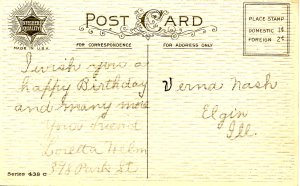 HIGHEST
QUALITY
MADE IN U.S.A.
POST CARD
FOR CORRESPONDENCE
FOR ADDRESS ONLY
PLACE STAMP
DOMESTIC 1¢
FOREIGN 2¢
I wish you a
happy Birthday
and many more
Your friend
Loretta Helm
Park St
Verna Nash
Elgin
Ill.
Series 438 C